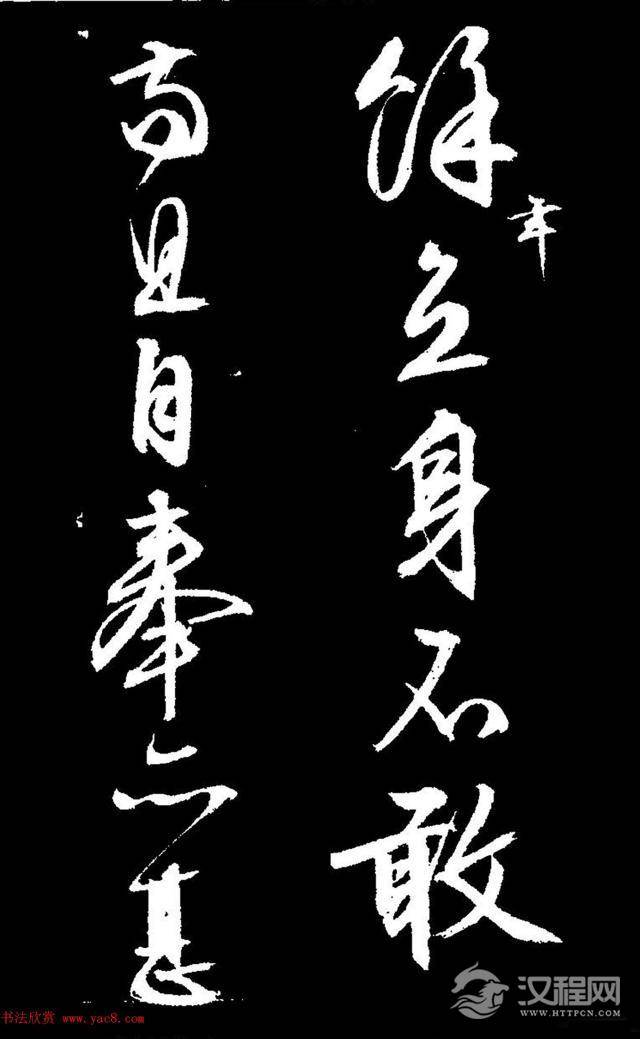 餘年立身不敢
高且自奉亦甚
书法欣赏 www.yac8.com
汉程网
WWW.HTTPCN.COM